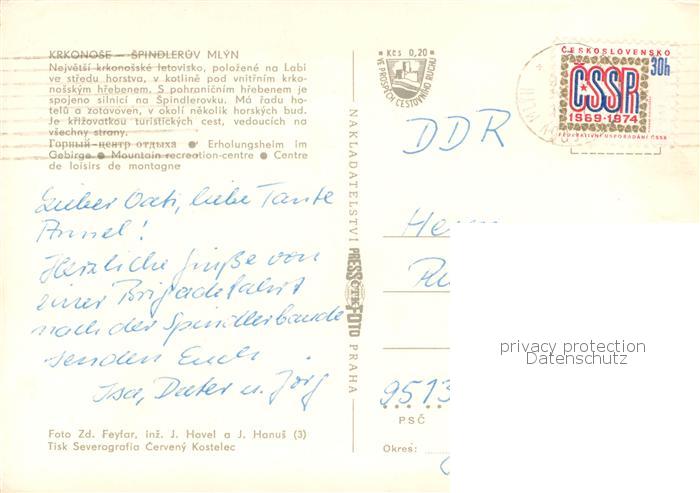 KRKONOŠE — ŠPINDLERŮV MLÝN
Největší krkonošské letovisko, položené na Labi
ve středu horstva, v kotlině pod vnitřním krko-
nošským hřebenem. S pohraničním hřebenem je
spojeno silnicí na Špindlerovku. Má řadu ho-
telů a zotavoven, v okolí několik horských bud.
Je křižovatkou turistických cest, vedoucích na
všechny strany.
Горный центр отдыха ● Erholungsheim im
Gebirge ● Mountain recreation-centre ● Centre
de loisirs de montagne
Lieber Vati, liebe Tante
Annel!
Herzliche Grüße von
einer Brigadefahrt
nach der Spindlerbaude
senden Euch
Isa, Dieter u. Jörg
Foto Zd. Feyfar, inž. J. Havel a J. Hanuš (3)
Tisk Severografia Červený Kostelec
NAKLADATELSTVÍ PRESSFOTO PRAHA
ČTK
Kčs 0,20
VE PROSPĚCH CESTOVNÍHO RUCHU
ČESKOSLOVENSKO
30h
ČSSR
1969-1974
FEDERATIVNÍ USPOŘÁDÁNÍ ČSSR
DDR
Herrn
9513
PSČ
Okres:
privacy protection
Datenschutz